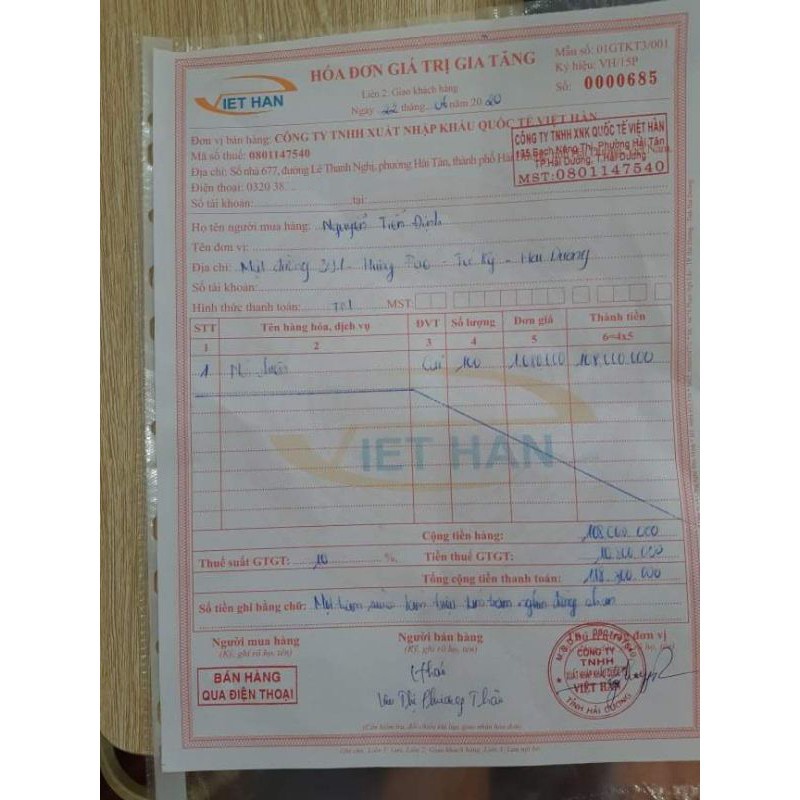 VIET HAN
HÓA ĐƠN GIÁ TRỊ GIA TĂNG
Liên 2: Giao khách hàng
Ngày 22 tháng 06 năm 2020
Mẫu số: 01GTKT3/001
Ký hiệu: VH/15P
Số: 0000685
Đơn vị bán hàng: CÔNG TY TNHH XUẤT NHẬP KHẨU QUỐC TẾ VIỆT HÀN
Mã số thuế: 0801147540
Địa chỉ: Số nhà 677, đường Lê Thanh Nghị, phường Hải Tân, thành phố Hải
Điện thoại: 0320 38
Số tài khoản: tại:
CÔNG TY TNHH XNK QUỐC TẾ VIỆT HÀN
Phường Hải Tân
TP Hải Dương, T.Hải Dương
MST:0801147540
Họ tên người mua hàng: Nguyễn Tiến Định
Tên đơn vị:
Địa chỉ: Mặt đường 391 - Hưng Đạo - Tứ Kỳ - Hải Dương
Số tài khoản:
Hình thức thanh toán: MST
STT Tên hàng hóa, dịch vụ ĐVT Số lượng Đơn giá Thành tiền
1 2 3 4 5 6=4x5
1 Cái 100 1.080.000 108.000.000
VIET HAN
Cộng tiền hàng: 108.000.000
Thuế suất GTGT: 10 % Tiền thuế GTGT: 10.800.000
Tổng cộng tiền thanh toán: 118.800.000
Số tiền ghi bằng chữ: Một trăm mười tám triệu tám trăm nghìn đồng chẵn
Người mua hàng
(Ký, ghi rõ họ, tên)
Người bán hàng
(Ký, ghi rõ họ, tên)
Thủ trưởng đơn vị
BÁN HÀNG
QUA ĐIỆN THOẠI
Thảo
Thị Phương Thảo
CÔNG TY
TNHH
XUẤT NHẬP KHẨU QUỐC TẾ
VIỆT HÀN
TỈNH HẢI DƯƠNG
(Cần kiểm tra, đối chiếu khi lập, giao nhận hóa đơn)